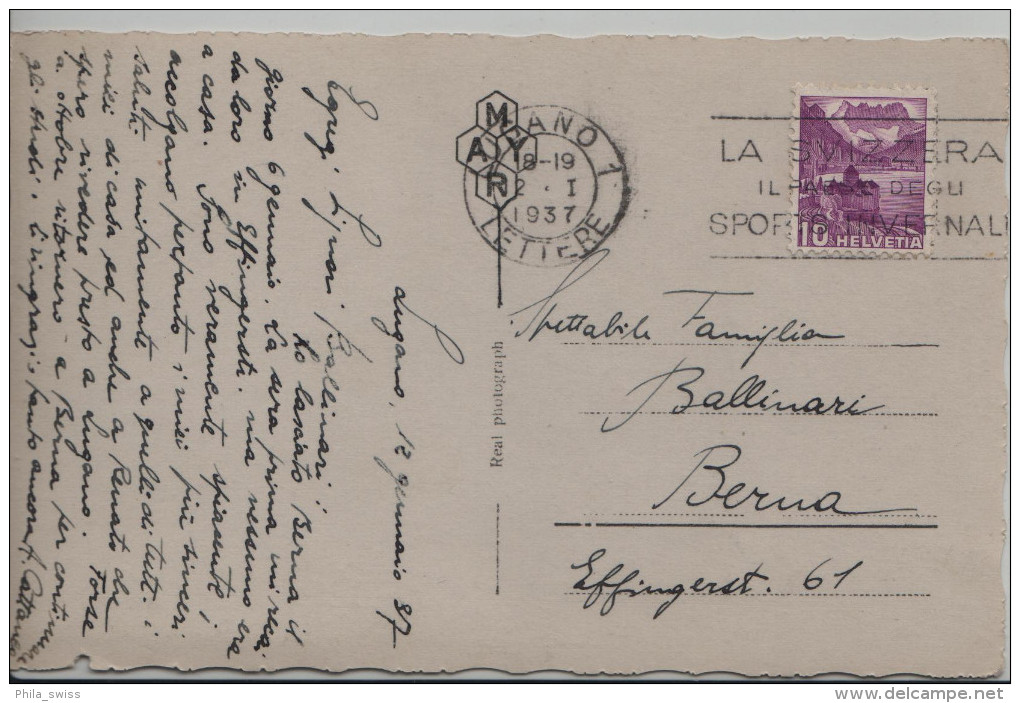 Lugano, 12 gennaio 37
Egregi Signori Ballinari!
Ho lasciato Berna il
giorno 6 gennaio. La sera prima mi recai
da loro in Effingerst. ma nessuno era
a casa. Sono veramente spiacente!
accolgano pertanto i miei più sinceri
saluti unitamente a quelli di tutti i
miei di casa ed anche a Renato che
spero rivedere presto a Lugano. Forse
a ottobre ritornerò a Berna per continuare
gli studi. Li ringrazio tanto ancora
MAYR
Real photograph
LUGANO 1
18-19
12 . I
1937
LETTERE
LA SVIZZERA
IL PAESE DEGLI
SPORTS INVERNALI
10 HELVETIA
Spettabile Famiglia
Ballinari
Berna
Effingerst. 61
Phila_swiss
www.delcampe.net